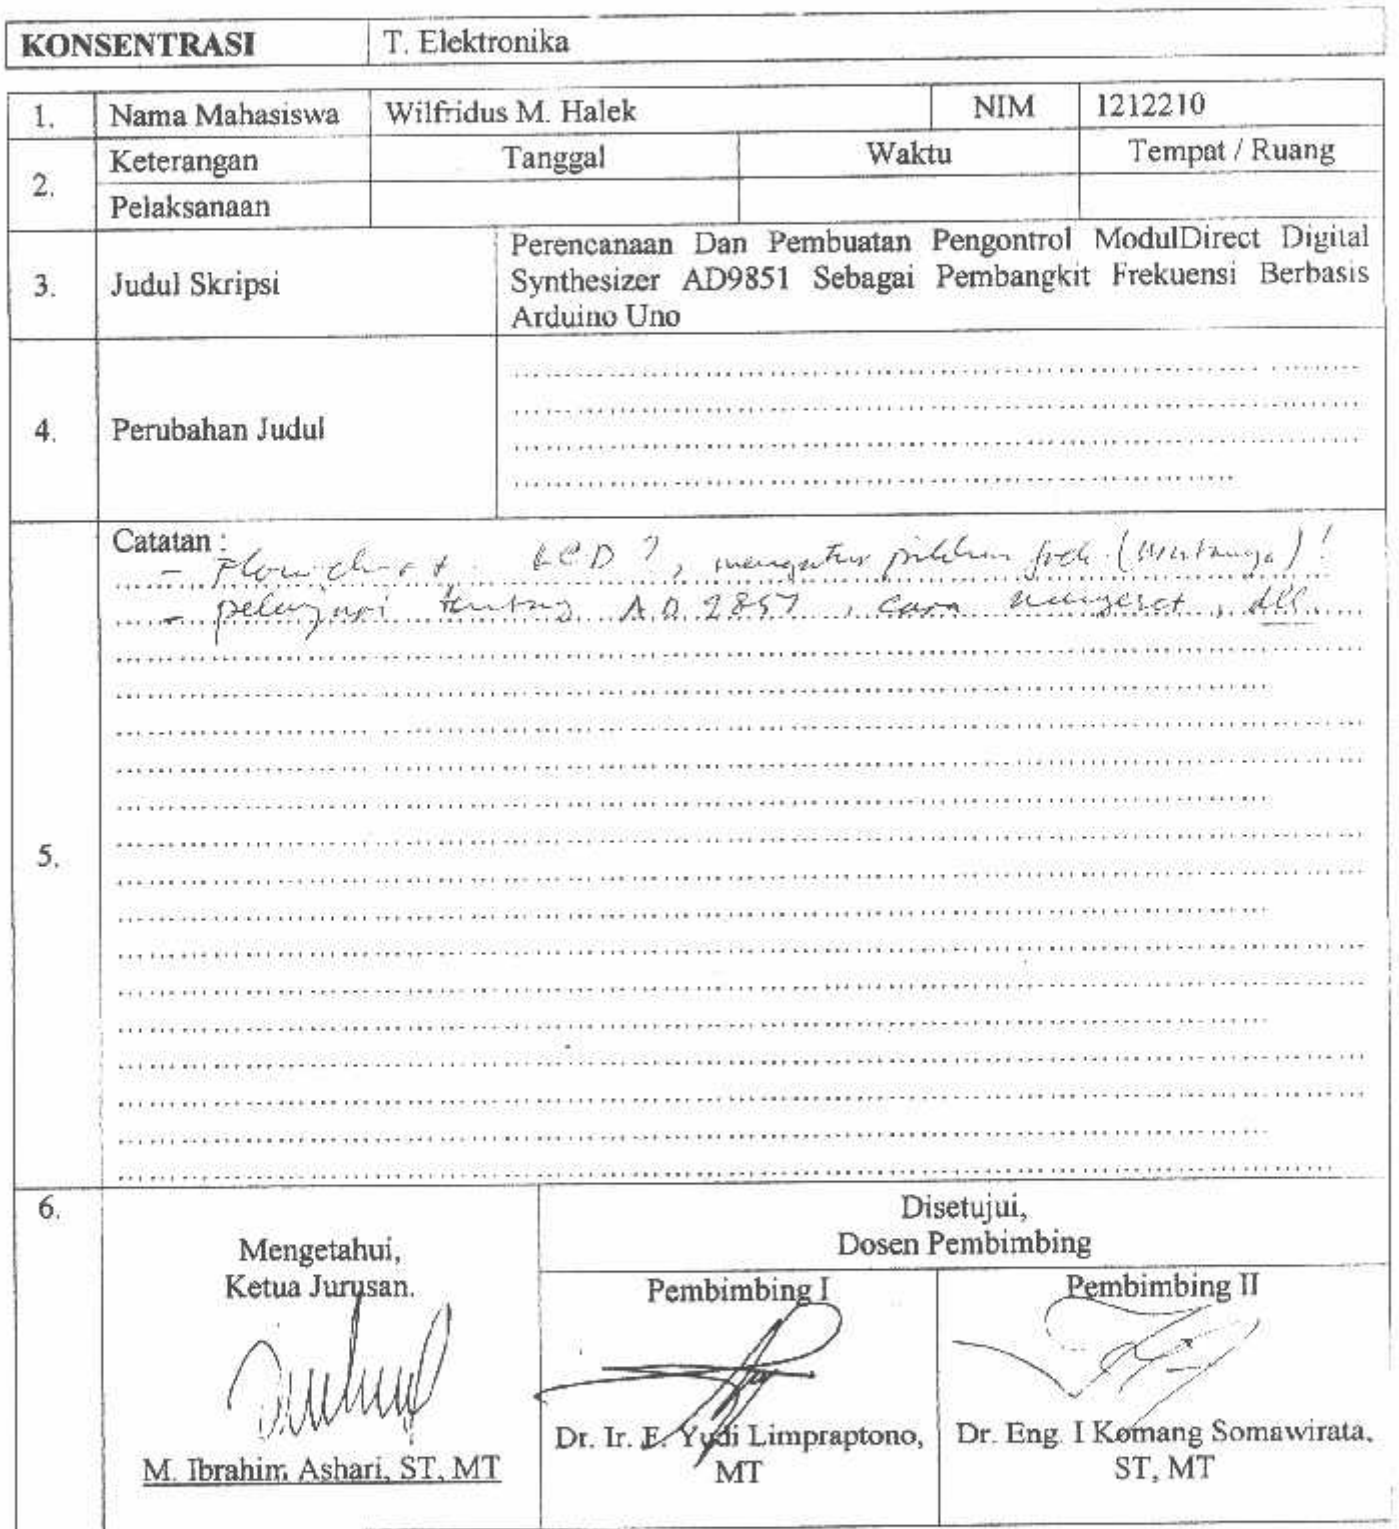 KONSENTRASI T. Elektronika
1. Nama Mahasiswa Wilfridus M. Halek NIM 1212210
2. Keterangan Tanggal Waktu Tempat / Ruang
Pelaksanaan
3. Judul Skripsi
Perencanaan Dan Pembuatan Pengontrol ModulDirect Digital
Synthesizer AD9851 Sebagai Pembangkit Frekuensi Berbasis
Arduino Uno
4. Perubahan Judul
5. Catatan :
- Flow chart LCD ?, mengatur pilihan
- pelajari tentang AD 9851, cara mengeset, dll.
6. Mengetahui,
Ketua Jurusan.
M. Ibrahim Ashari, ST, MT
Disetujui,
Dosen Pembimbing
Pembimbing I
Dr. Ir. F. Yudi Limpraptono,
MT
Pembimbing II
Dr. Eng. I Komang Somawirata,
ST, MT